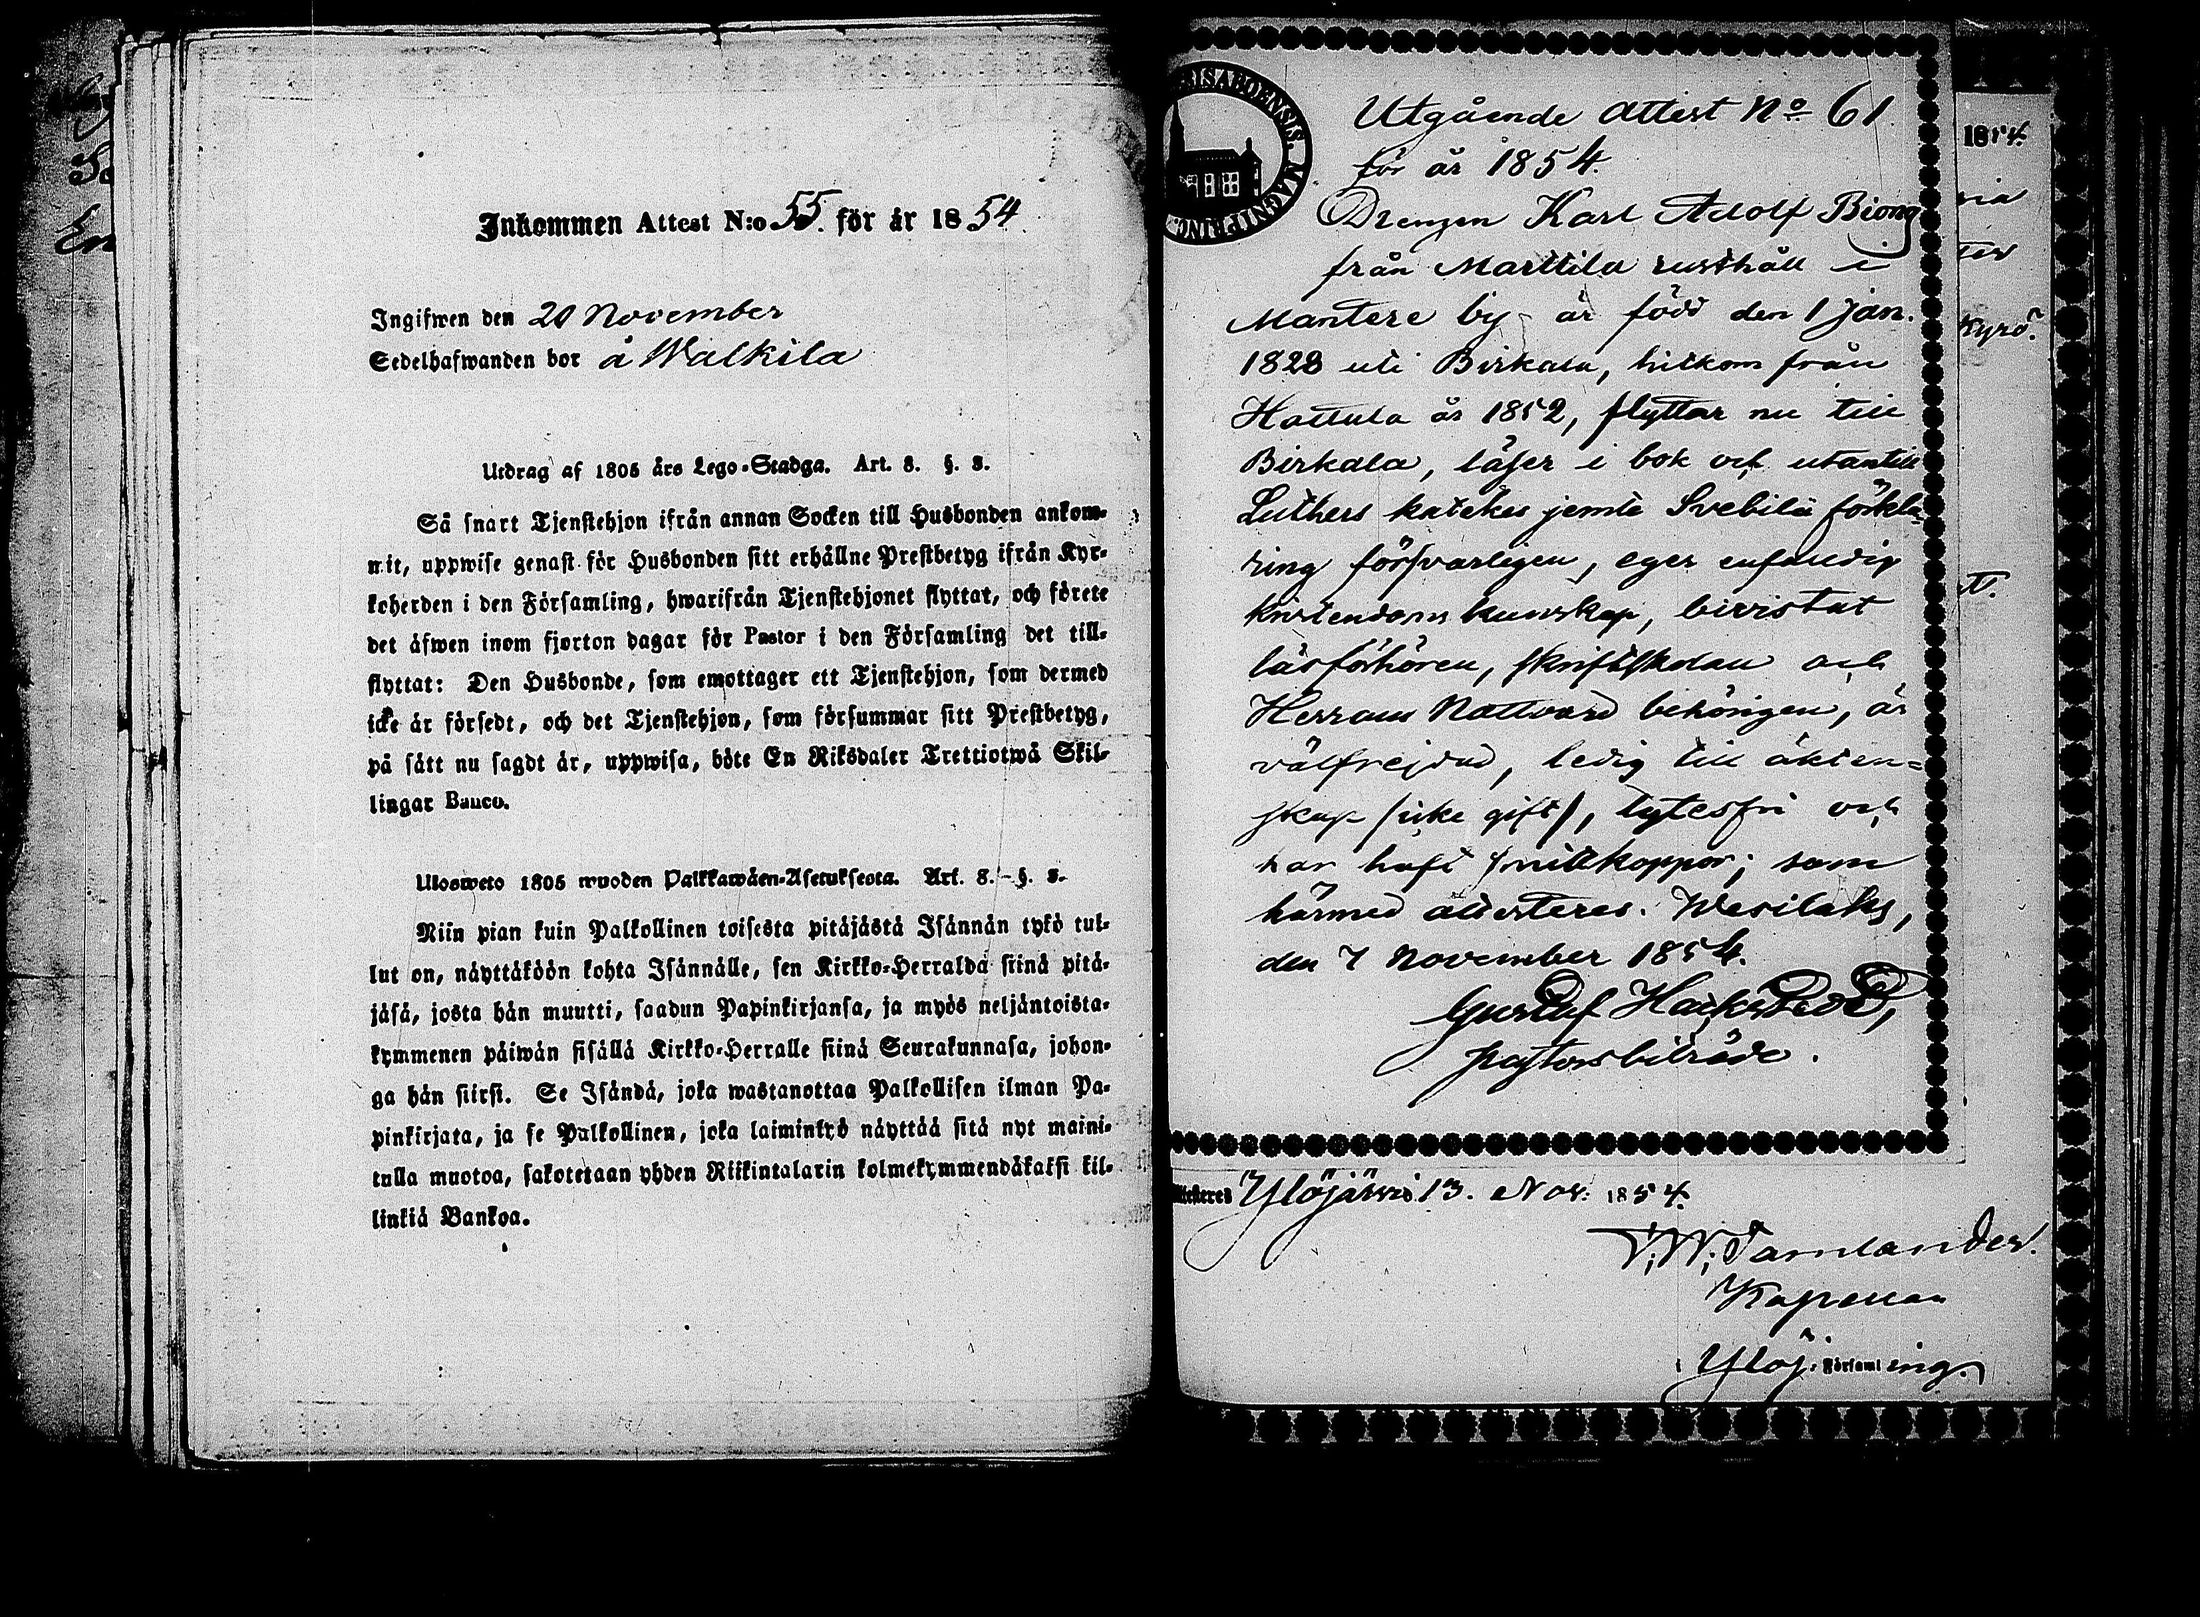 Inkommen Attest N:o 55. för år 1854.
Ingifwen den 20 November
Sedelhafwanden bor å Walkila
Utdrag af 1805 års Lego-Stadga. Art. 8. §. 3.
Så snart Tjenstehjon ifrån annan Socken till Husbonden ankom-
mit, uppwise genast för Husbonden sitt erhållne Prestbetyg ifrån Kyr-
koherden i den Församling, hwarifrån Tjenstehjonet flyttat, och förete
det äfwen inom fjorton dagar för Pastor i den Församling det till-
flyttat: Den Husbonde, som emottager ett Tjenstehjon, som dermed
icke är försedt, och det Tjenstehjon, som försummar sitt Prestbetyg,
på sätt nu sagdt är, uppwisa, böte En Riksdaler Trettiotwå Skil-
lingar Banco.
Ulosweto 1805 wuoden Palkkawäen-Asetuksesta. Art. 8. §. 3.
Niin pian kuin Palkollinen toisesta pitäjästä Isännän tykö tul-
lut on, näyttäköön kohta Isännälle, sen Kirkko-Herralda siinä pitä-
jäsä, josta hän muutti, saadun Papinkirjansa, ja myös neljäntoista-
kymmenen päiwän sisällä Kirkko-Herralle siinä Seurakunnasa, johon-
ga hän siirsi. Se Isändä, joka wastanottaa Palkollisen ilman Pa-
pinkirjata, ja se Palkollinen, joka laiminkyö näyttää sitä nyt maini-
tulla muotoa, sakotetaan yhden Riikintalarin kolmekymmendäkaksi kil-
linkiä Bankoa.
Utgående Attest No 61
för år 1854.
Drengen Karl Adolf Biong
från Marttila rusthåll i
Mantere by är född den 1 Jan.
1828 uti Birkala, hitkom från
Hattula år 1852, flyttar nu till
Birkala, läser i bok och utantill
Luthers katekes jemte Svebilii förkla-
ring försvarligen, eger enfaldig
kristendoms kunskap, bivistat
läsförhören, skriftskolan och
Herrans Nattvard behörigen, är
välfrejdad, ledig till äkten-
skap /icke gift/, lytesfri och
har haft smittkoppor; som
härmed attesteras. Wesilaks,
den 7 November 1854.
Gustaf Hacksted,
pastorsbiträde.
Ylöjärvi 13. Nov. 1854.
Kapellan
Ylöj. Församling.
1854.
Kyrö.